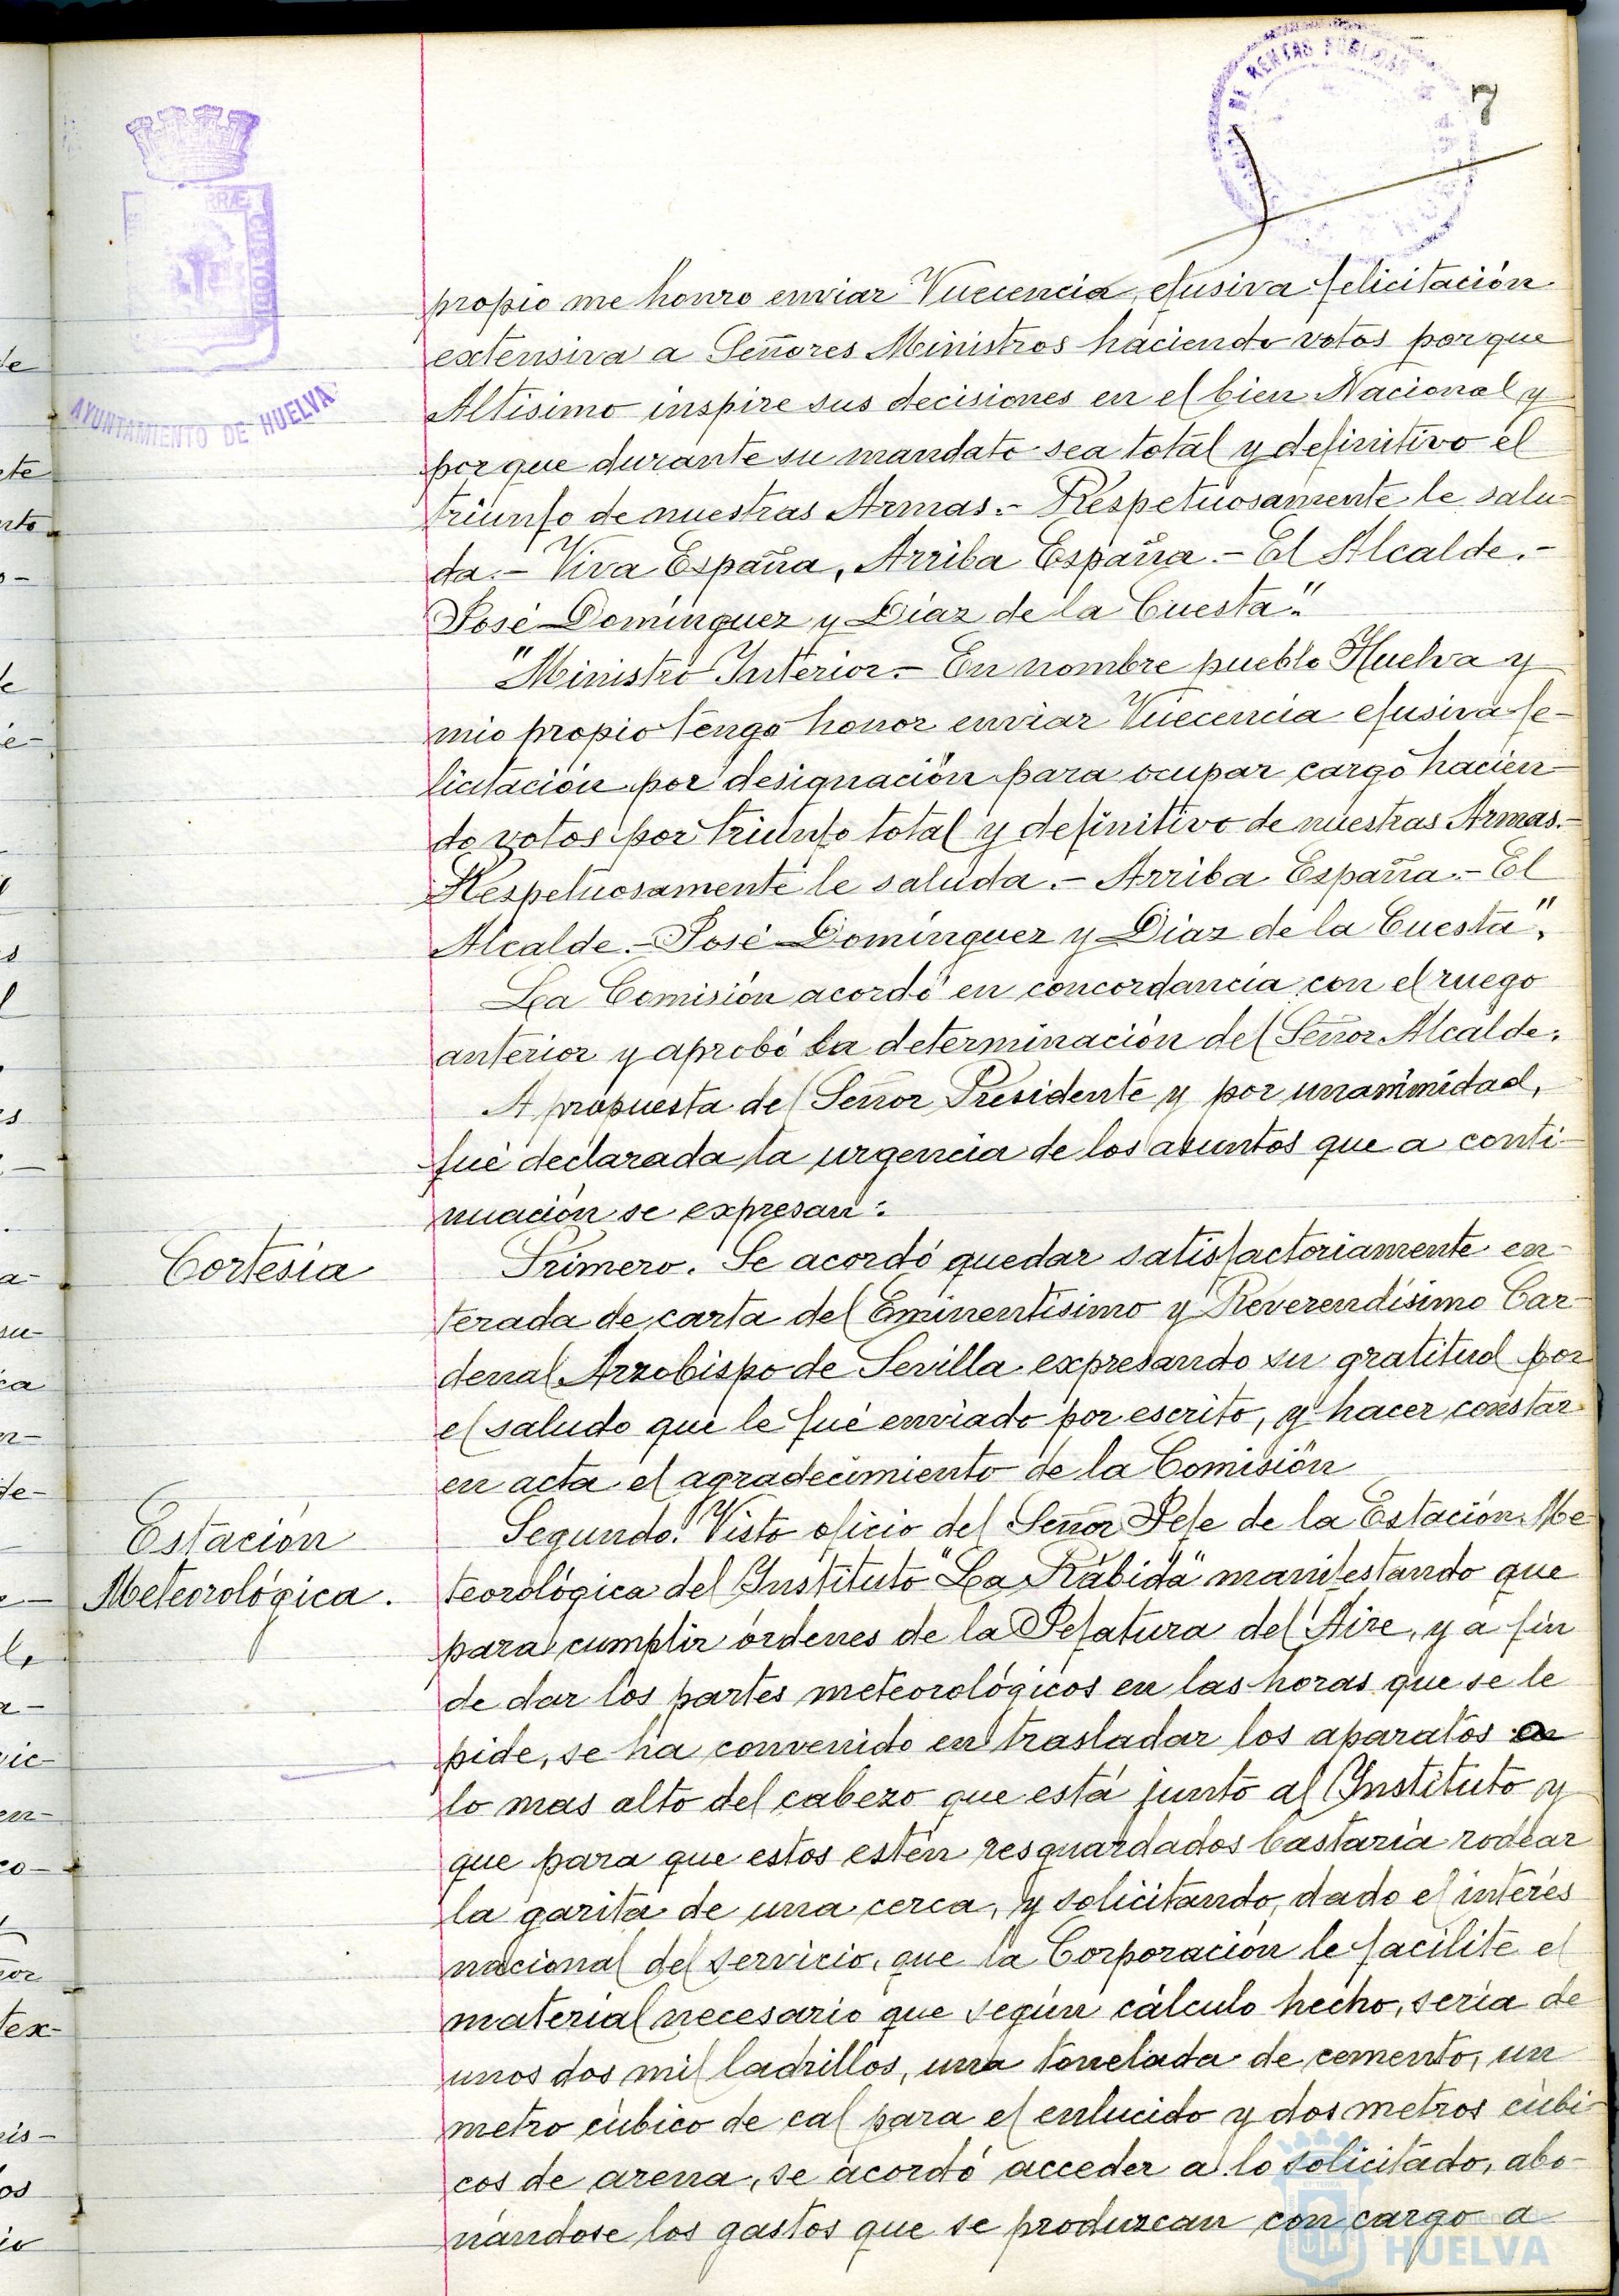 DE RENTAS PÚBLICAS
7
AYUNTAMIENTO DE HUELVA
propio me honro enviar Vuecencia efusiva felicitación
extensiva a Señores Ministros haciendo votos porque
Altísimo inspire sus decisiones en el bien Nacional y
porque durante su mandato sea total y definitivo el
triunfo de nuestras Armas.- Respetuosamente le salu-
da.- Viva España, Arriba España.- El Alcalde.-
José Domínguez y Díaz de la Cuesta."
"Ministro Interior.- En nombre pueblo Huelva y
mio propio tengo honor enviar Vuecencia efusiva fe-
licitación por designación para ocupar cargo hacien-
do votos por triunfo total y definitivo de nuestras Armas.-
Respetuosamente le saluda.- Arriba España.- El
Alcalde.- José Domínguez y Díaz de la Cuesta".
La Comisión acordó en concordancia con el ruego
anterior y aprobó la determinación del Señor Alcalde.
A propuesta del Señor Presidente y por unanimidad,
fué declarada la urgencia de los asuntos que a conti-
nuación se expresan:
Cortesía
Primero. Se acordó quedar satisfactoriamente en-
terada de carta del Eminentísimo y Reverendísimo Car-
denal Arzobispo de Sevilla expresando su gratitud por
el saludo que le fué enviado por escrito, y hacer constar
en acta el agradecimiento de la Comisión
Estación
Meteorológica.
Segundo. Visto oficio del Señor Jefe de la Estación Me
teorológica del Instituto "La Rábida" manifestando que
para cumplir órdenes de la Jefatura del Aire, y a fin
de dar los partes meteorológicos en las horas que se le
pide, se ha convenido en trasladar los aparatos en
lo mas alto del cabezo que está junto al Instituto y
que para que estos estén resguardados bastaría rodear
la garita de una cerca, y solicitando, dado el interés
nacional del servicio, que la Corporación le facilite el
material necesario que según cálculo hecho, sería de
unos dos mil ladrillos, una tonelada de cemento, un
metro cúbico de cal para el enlucido y dos metros cúbi-
cos de arena, se acordó acceder a lo solicitado, abo-
nándose los gastos que se produzcan con cargo a
HUELVA